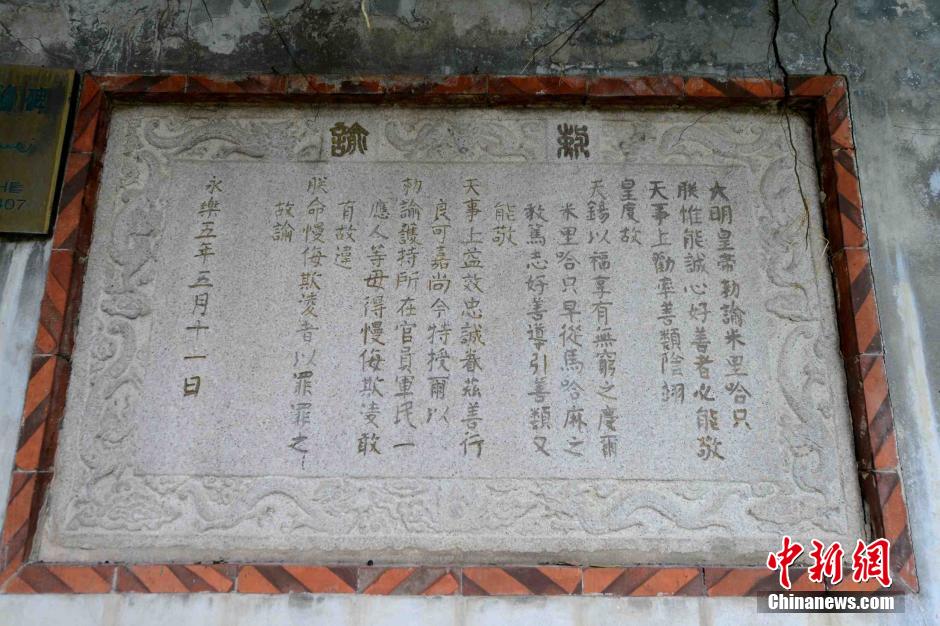 敕諭
大明皇帝勅諭米里哈只
朕惟能誠心好善者必能敬
天事上勸率善類陰翊
皇度故
天錫以福享有無窮之慶爾
米里哈只早從馬哈麻之
教篤志好善導引善類又
能敬
天事上益效忠誠眷茲善行
良可嘉尚今特授爾以
勅諭護持所在官員軍民一
應人等毋得慢侮欺凌敢
有故違
朕命慢侮欺凌者以罪罪之
故諭
永樂五年五月十一日
HE
407
中新网
Chinanews.com